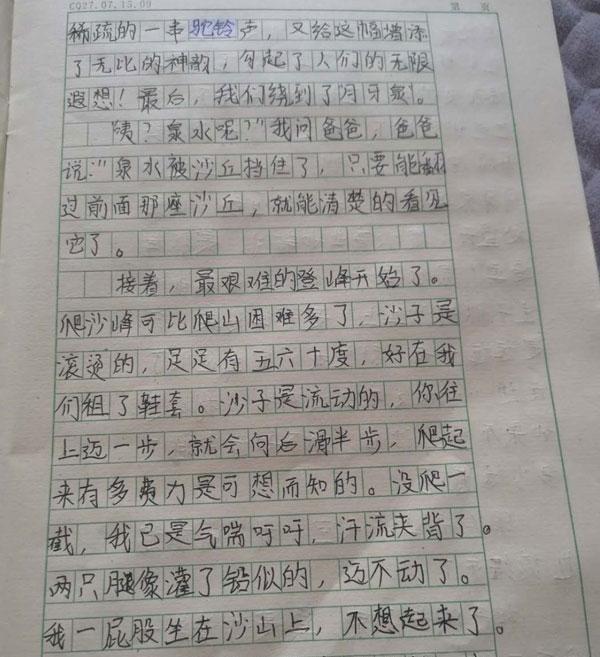 CQ27.07.15.09 第 页
稀疏的一串驼铃声，又给这幅增添
了无比的神韵，勾起了人们的无限
遐想！最后，我们绕到了月牙泉。
"咦？泉水呢？"我问爸爸，爸爸
说："泉水被沙丘挡住了，只要能翻
过前面那座沙丘，就能清楚的看见
它了。
接着，最艰难的登峰开始了。
爬沙峰可比爬山困难多了，沙子是
滚烫的，足足有五六十度，好在我
们租了鞋套。沙子是流动的，你往
上迈一步，就会向后滑半步，爬起
来有多费力是可想而知的。没爬一
截，我已是气喘吁吁，汗流夹背了。
两只腿像灌了铅似的，迈不动了。
我一屁股坐在沙山上，不想起来了。